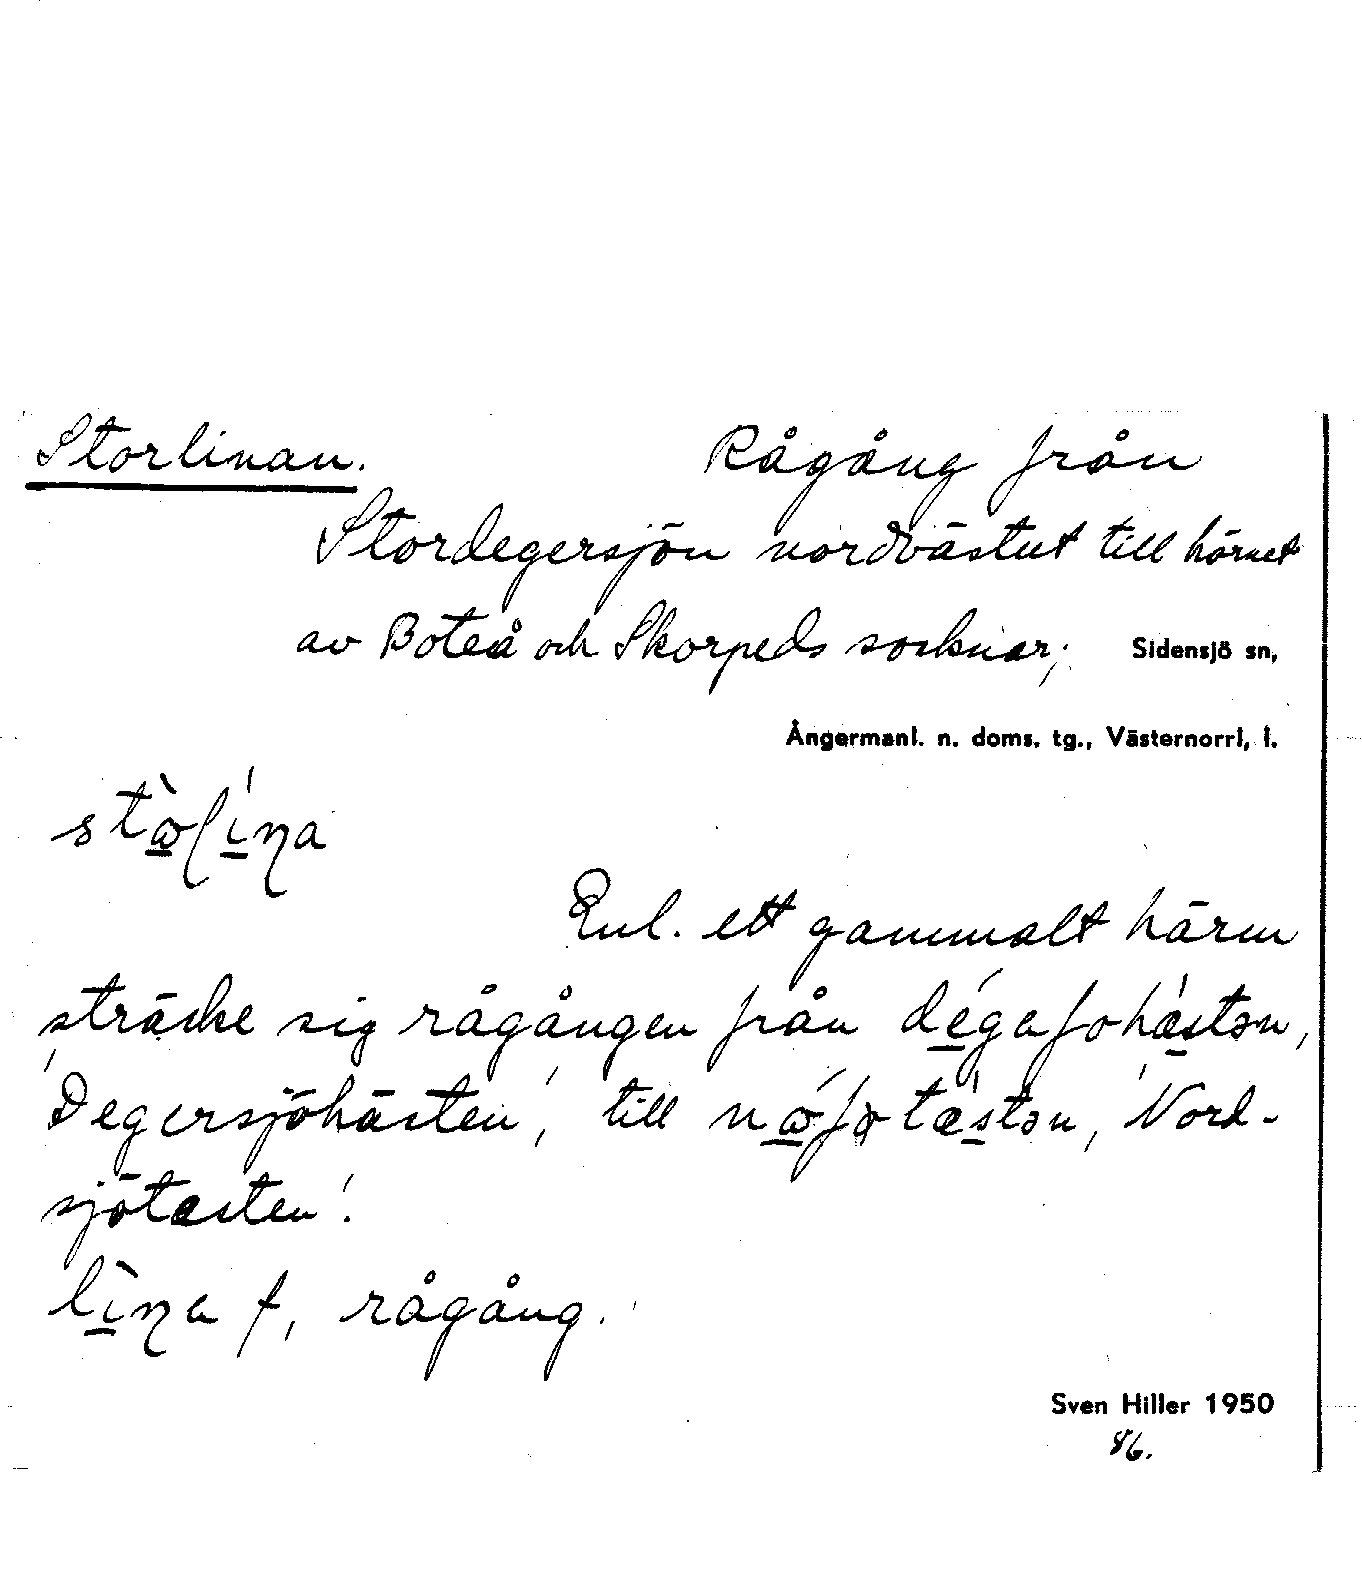 Storlinan. Rågång från
Stordegersjön nordvästut till hörnet
av Boteå och Skorpeds socknar; Sidensjö sn,
Ångermanl. n. doms. tg., Västernorrl. l.
Enl. ett gammalt härm
sträcke sig rågången från
'Degersjöhästen', till 'Nord-
sjötæsten'.
f, rågång.
Sven Hiller 1950
86.